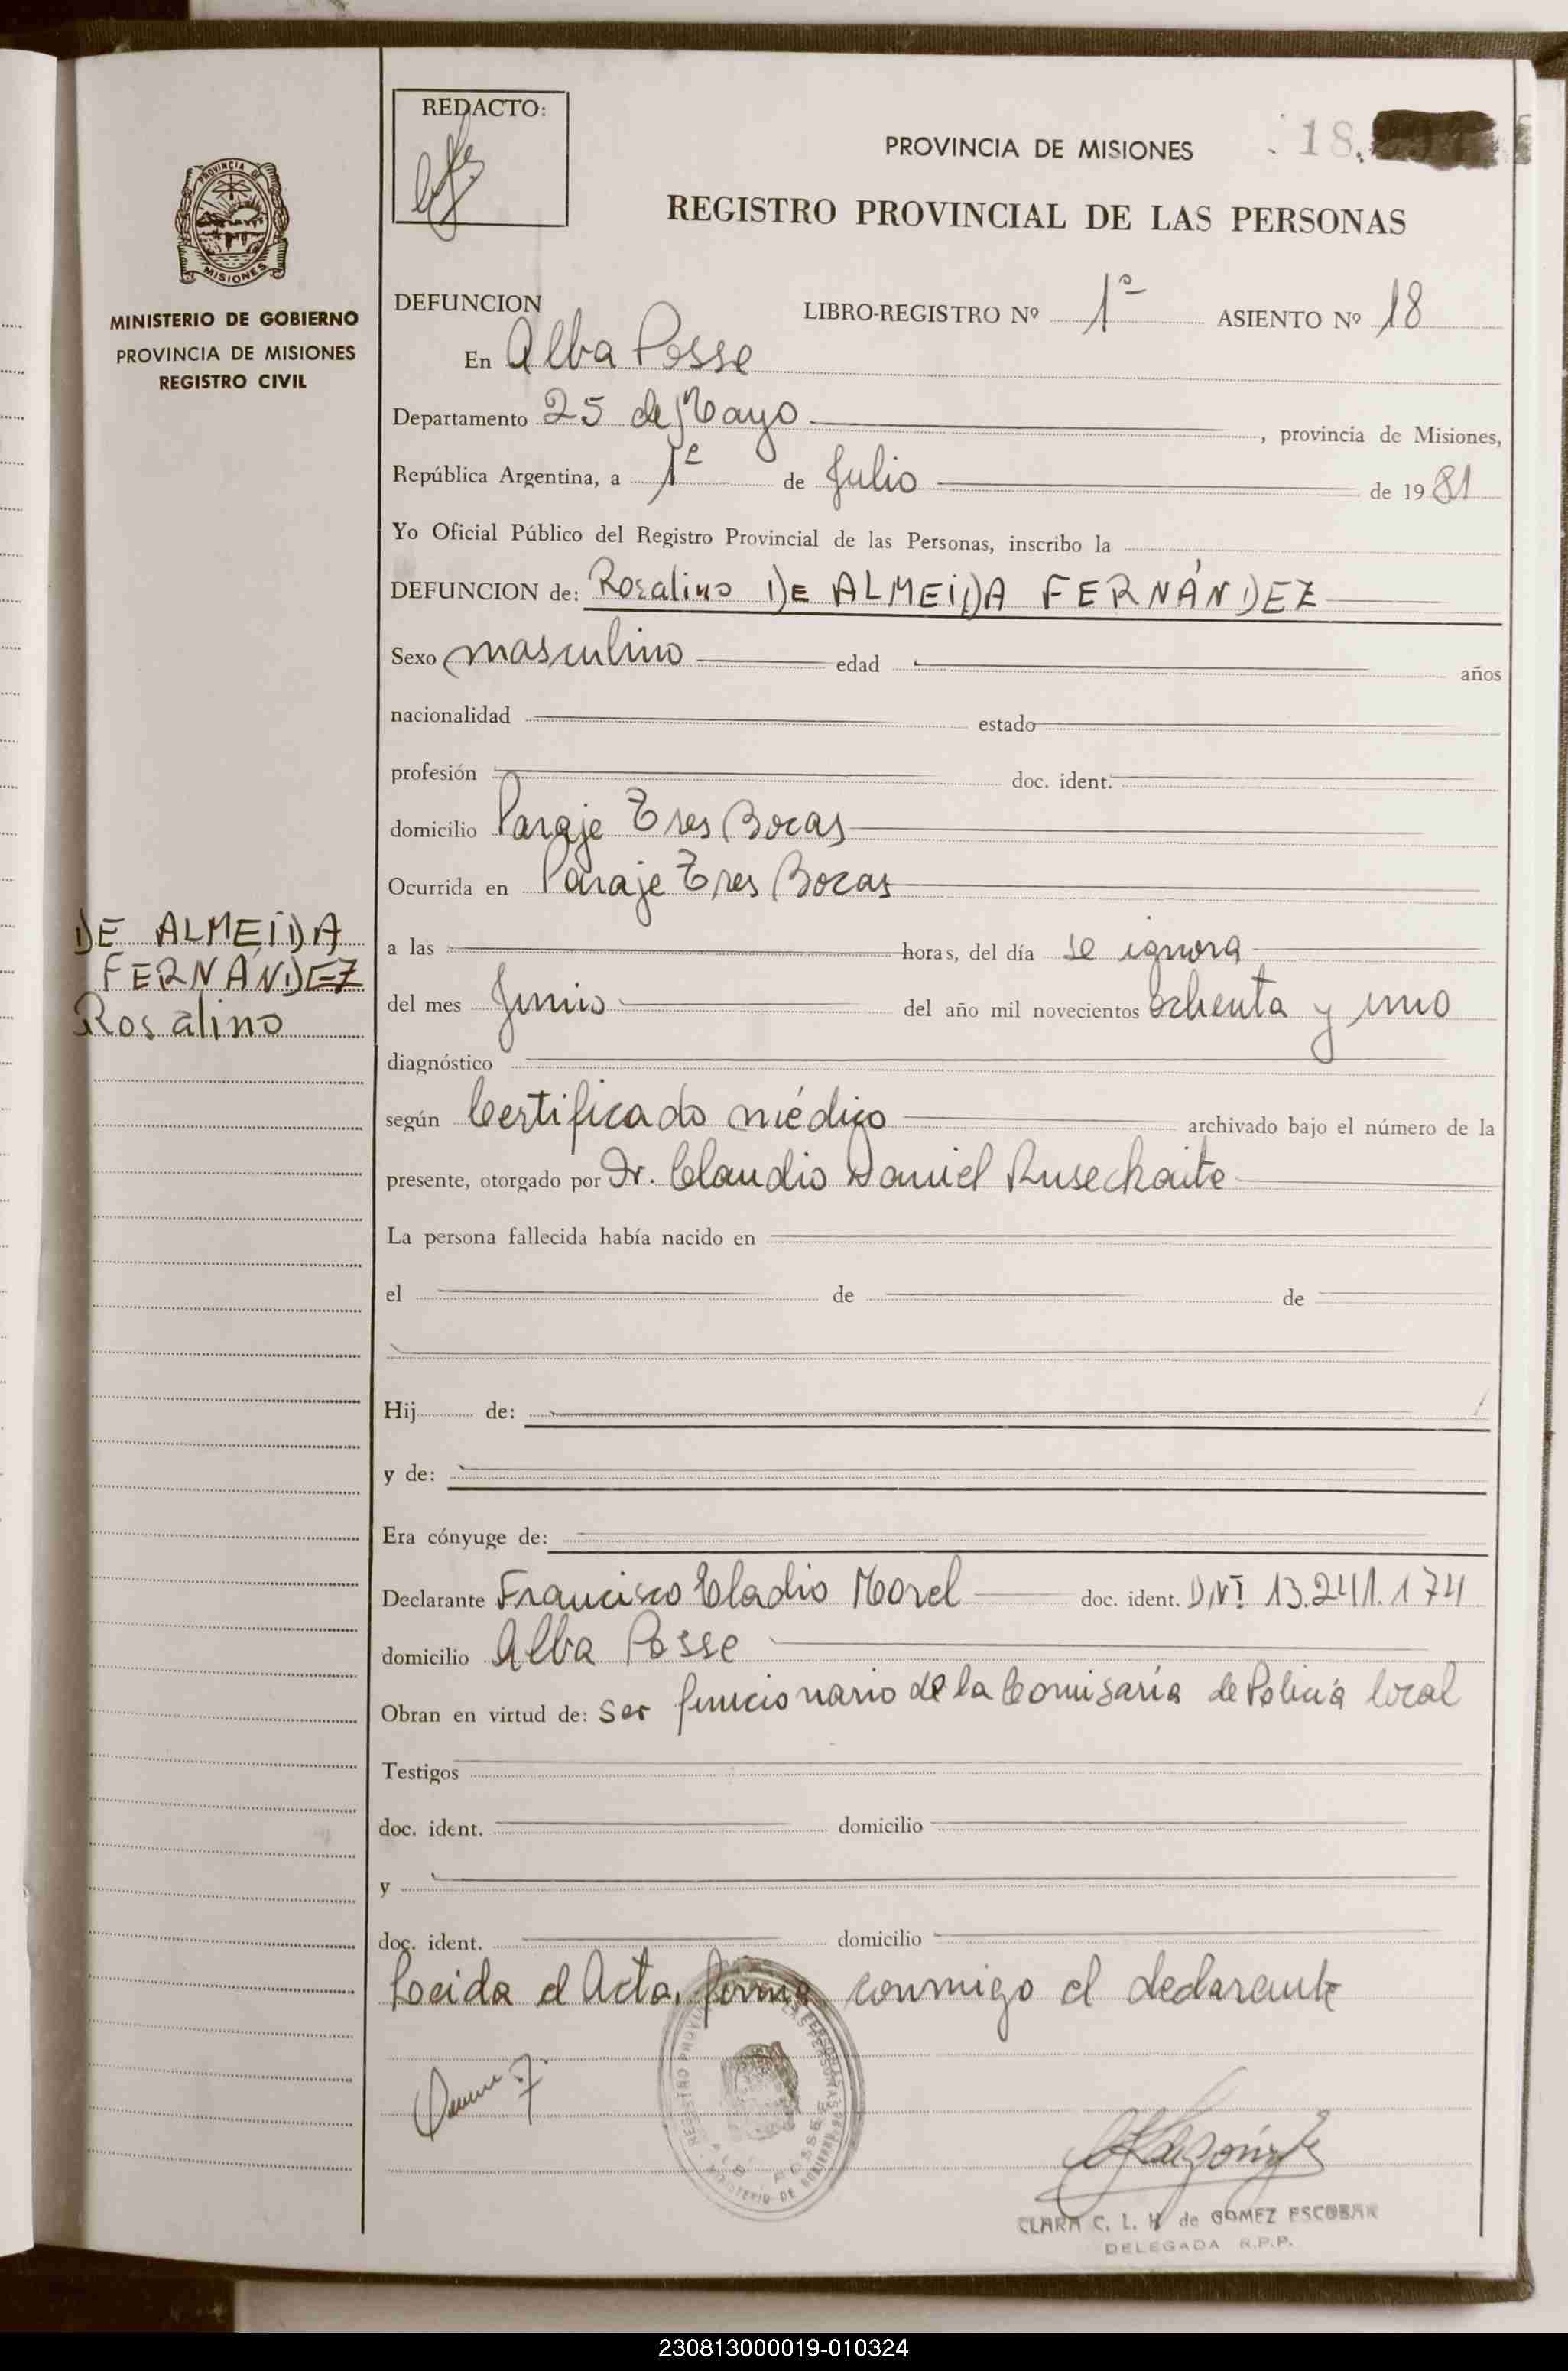 REDACTO:
PROVINCIA DE MISIONES
18.
REGISTRO PROVINCIAL DE LAS PERSONAS
PROVINCIA DE
MISIONES
MINISTERIO DE GOBIERNO
PROVINCIA DE MISIONES
REGISTRO CIVIL
DE ALMEIDA
FERNÁNDEZ
Rosalino
DEFUNCION LIBRO-REGISTRO Nº 1º ASIENTO Nº 18
En Alba Posse
Departamento 25 de Mayo, provincia de Misiones,
República Argentina, a 1º de Julio de 1981
Yo Oficial Público del Registro Provincial de las Personas, inscribo la
DEFUNCION de: Rosalino DE ALMEIDA FERNÁNDEZ
Sexo masculino edad años
nacionalidad estado
profesión doc. ident.
domicilio Paraje Tres Bocas
Ocurrida en Paraje Tres Bocas
a las horas, del día se ignora
del mes Junio del año mil novecientos ochenta y uno
diagnóstico
según Certificado médico archivado bajo el número de la
presente, otorgado por Dr. Claudio Daniel Rusechaite
La persona fallecida había nacido en
el de de
Hij de:
y de:
Era cónyuge de:
Declarante Francisco Eladio Morel doc. ident. DNI 13.241.174
domicilio Alba Posse
Obran en virtud de: Ser funcionario de la Comisaría de Policía local
Testigos
doc. ident. domicilio
y
doc. ident. domicilio
Leida el Acta, firma conmigo el declarante
CLARA C. L. H de GOMEZ ESCOBAR
DELEGADA R.P.P.
230813000019-010324